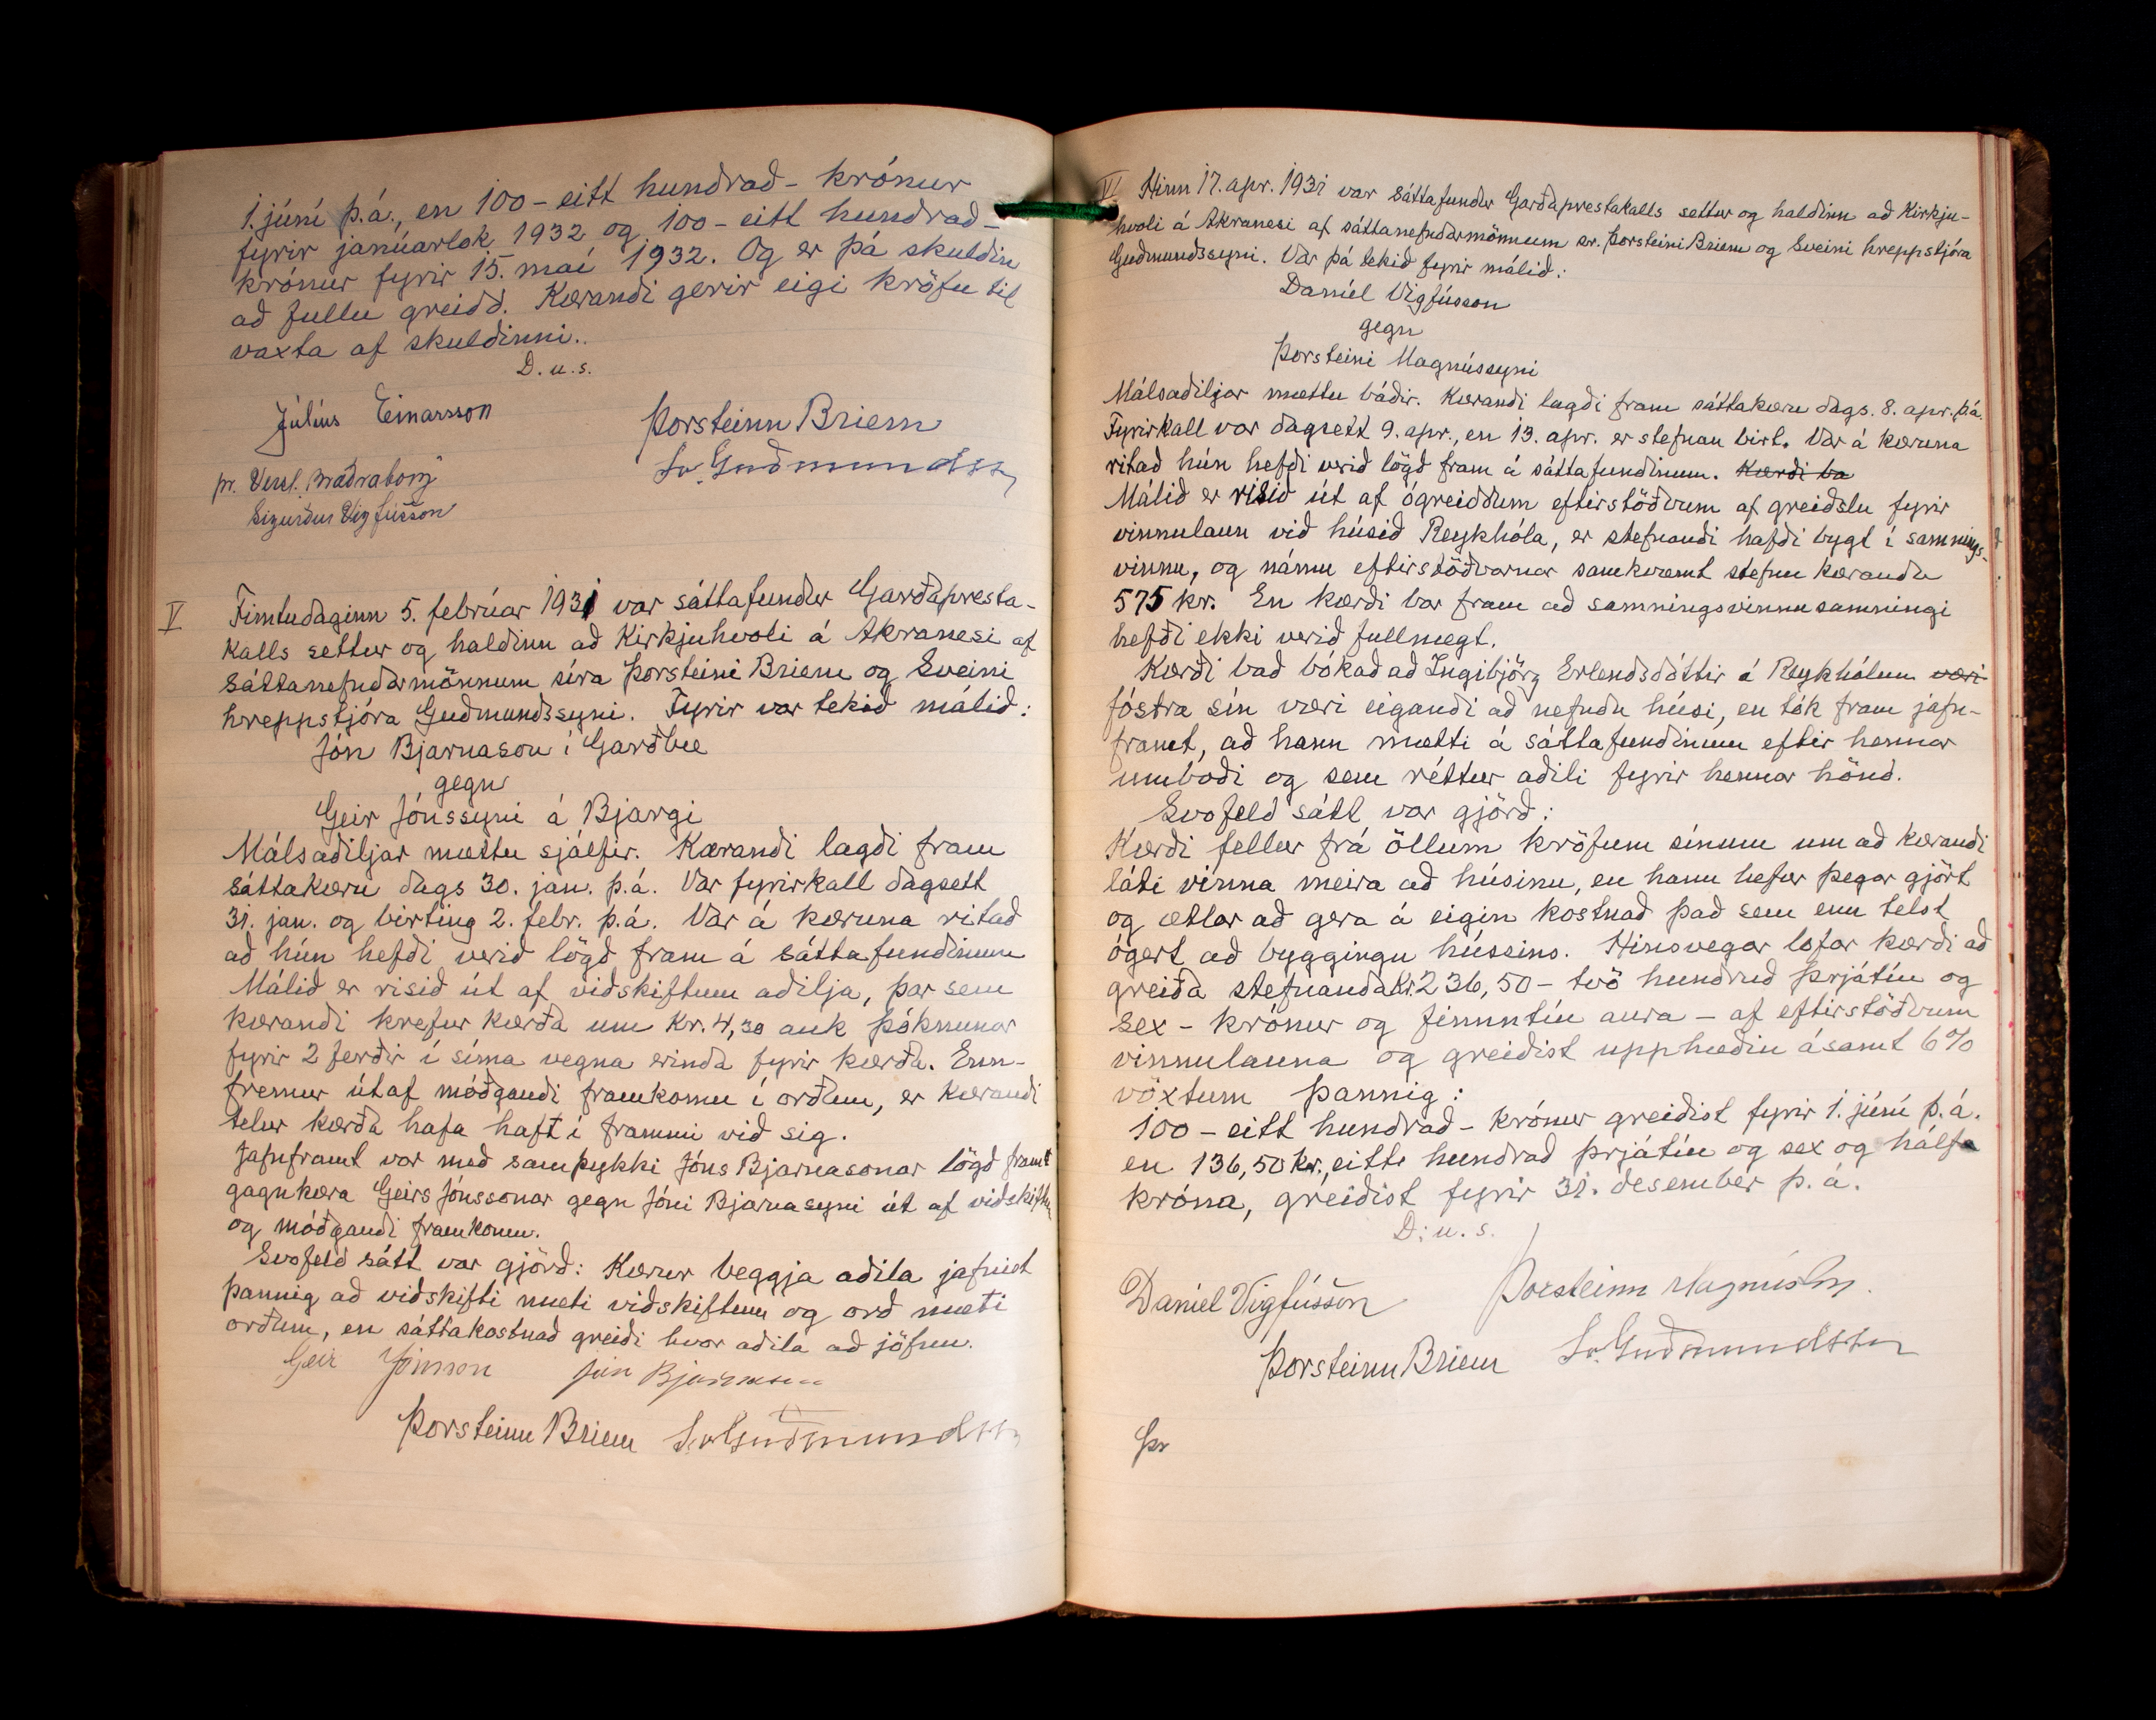 1. júní þ.á., en 100 - eitt hundrað - krónur
fyrir janúarlok 1932 og 100 - eitt hundrað -
krónur fyrir 15. maí 1932. Og er þá skuldin
að fullu greidd. Kærandi gerir eigi kröfu til
vaxta af skuldinni..
D.u.s.
Júlíus Einarsson
Þorsteinn Briem
Sv. Guðmundsson
pr. Verzl. Bræðraborg
Sigurður Vigfússon
V Fimtudaginn 5. febrúar 1931 var sáttafundur Garðapresta-
kalls settur og haldinn að Kirkjuhvoli á Akranesi af
sáttanefndarmönnum síra Þorsteini Briem og Sveini
hreppstjóra Guðmundssyni. Fyrir var tekið málið:
Jón Bjarnason í Garðbæ
gegn
Geir Jónssyni á Bjargi
Málsaðiljar mættu sjálfir. Kærandi lagði fram
sáttakæru dags 30. jan. þ.á. Var fyrirkall dagsett
31. jan. og birting 2. febr. þ.á. Var á kæruna ritað
að hún hefði verið lögð fram á sáttafundinum
Málið er risið út af viðskiftum aðilja, þar sem
kærandi krefur kærða um kr. 4,30 auk þóknunar
fyrir 2 ferðir í síma vegna erinda fyrir kærða. Enn-
fremur útaf móðgandi framkomu í orðum, er kærandi
telur kærða hafa haft í frammi við sig.
Jafnframt var með samþykki Jóns Bjarnasonar lögð framt
gagnkæra Geirs Jónssonar gegn Jóni Bjarnasyni út af viðskiftum
og móðgandi framkomu.
Svofeld sátt var gjörð: Kærur beggja aðila jafnist
þannig að viðskifti mæti viðskiftum og orð mæti
orðum, en sáttakostnað greiði hvor aðila að jöfnu.
Geir Jónsson Jón Bjarnason
Þorsteinn Briem Sv Guðmundsson
VI Hinn 17. apr. 1931 var sáttafundur Garðaprestakalls settur og haldinn að Kirkju-
hvoli á Akranesi af sáttanefndarmönnum sr. Þorsteini Briem og Sveini hreppstjóra
Guðmundssyni. Var þá tekið fyrir málið:
Daníel Vigfússon
gegn
Þorsteini Magnússyni
Málsaðiljar mættu báðir. Kærandi lagði fram sáttakæru dags. 8. apr. þ.á.
Fyrirkall var dagsett 9. apr., en 13. apr. er stefnan birt. Var á kæruna
ritað hún hefði verið lögð fram á sáttafundinum. Kærði ba
Málið er risið út af ógreiddum eftirstöðvum af greiðslu fyrir
vinnulaun við húsið Reykhóla, er stefnandi hafði bygt í samnings-
vinnu, og námu eftirstöðvarnar samkvæmt stefnu kæranda
575 kr. En kærði bar fram að samningsvinnusamningi
hefði ekki verið fullnægt.
Kærði bað bókað að Ingibjörg Erlendsdóttir á Reykhólum væri
fóstra sín væri eigandi að nefndu húsi, en tók fram jafn-
framt, að hann mætti á sáttafundinum eftir hennar
umboði og sem réttur aðili fyrir hennar hönd.
Svofeld sátt var gjörð:
Kærði fellur frá öllum kröfum sínum um að kærandi
láti vinna meira að húsinu, en hann hefur þegar gjört
og ætlar að gera á eigin kostnað það sem enn telst
ógert að byggingu hússins. Hinsvegar lofar kærði að
greiða stefnanda Kr. 236,50 - tvö hundruð þrjátíu og
sex - krónur og fimmtíu aura - af eftirstöðvum
vinnulauna og greiðist upphæðin ásamt 6%
vöxtum þannig:
100 - eitt hundrað - krónur greiðist fyrir 1. júní þ.á.
en 136,50 kr., eitt hundrað þrjátíu og sex og hálfa
króna, greiðist fyrir 31. desember þ.á.
D:u.s.
Daníel Vigfússon Þorsteinn Magnússon
Þorsteinn Briem Sv. Guðmundsson
Þr